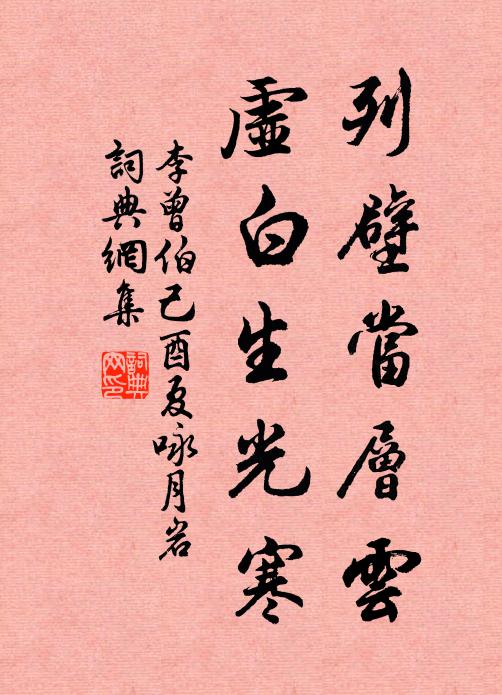 列壁當層雲
虛白生光寒
李曾伯己酉夏咏月岩
詞典網集
詞典网印